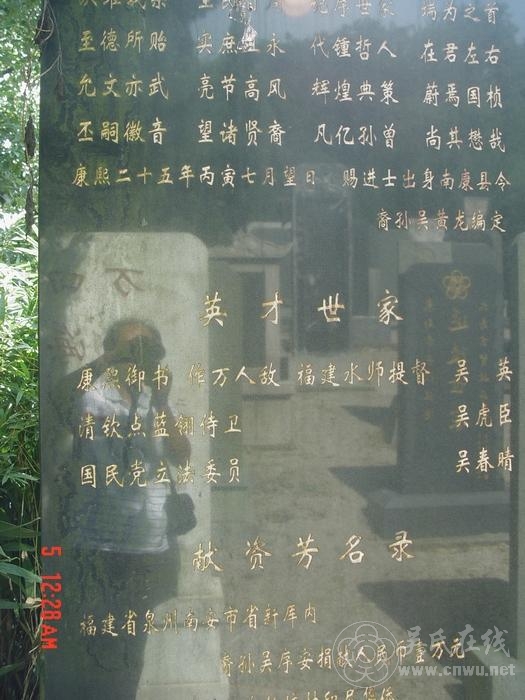 至德所贻 实庶且永 代锺哲人 在君左右
允文亦武 亮节高风 辉煌典策 蔚焉国桢
丕嗣徽音 望诸贤裔 凡亿孙曾 尚其懋哉
康熙二十五年丙寅七月望日 赐进士出身南康县令
裔孙吴黄龙编定
英才世家
康熙御书 作万人敌 福建水师提督 吴英
清钦点蓝翎侍卫 吴虎臣
国民党立法委员 吴春晴
献资芳名录
福建省泉州南安市省新厍内
裔孙吴序安捐献人民币壹万元
5 12:28AM
吴氏在线
www.cnwu.net